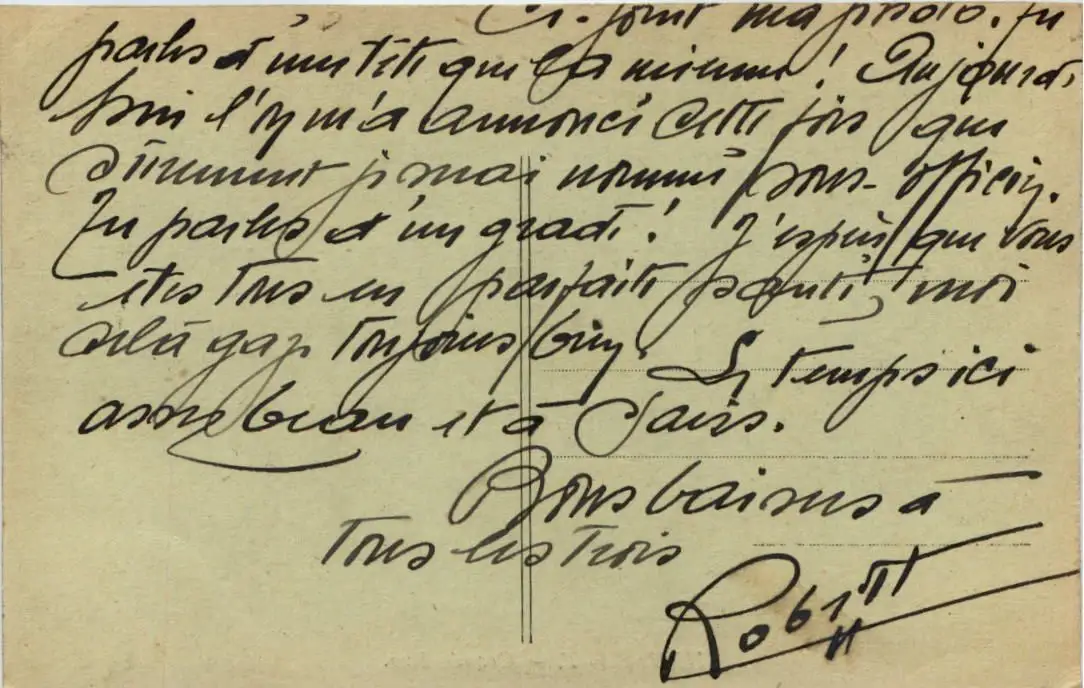 Ci-joint ma photo. Tu
parles d'une tête que la mienne! Aujourd'
hui l'on m'a annoncé cette fois que
sûrement je serai nommé sous-officier.
Tu parles d'un gradé! J'espère que vous
êtes tous en parfaite santé, moi
cela gaze toujours bien. Le temps ici
assez beau et à
Bons baisers à
tous les trois
Robert